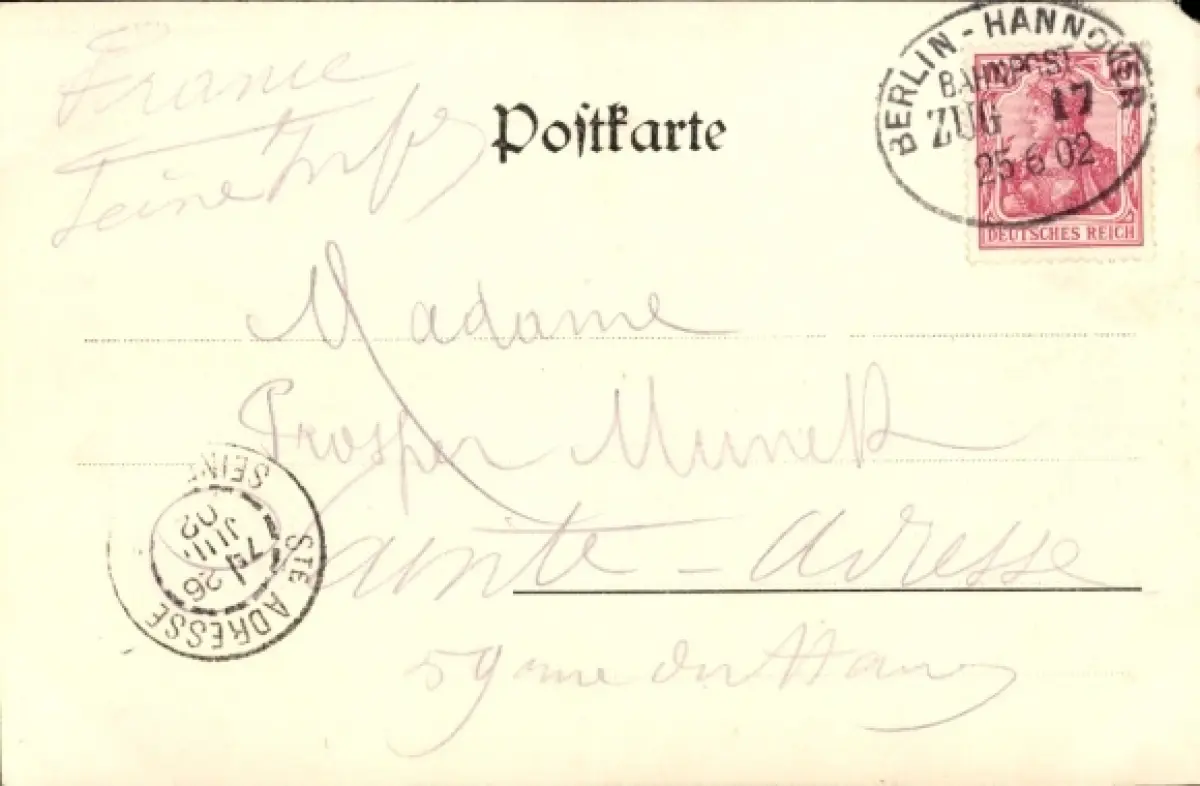 France
Seine Infre
Postkarte
BERLIN - HANNOVER
BAHNPOST
ZUG 17
25 6 02
DEUTSCHES REICH
Madame
Prosper
Sainte - Adresse
59 rue du Havre
STE ADRESSE
SEINE
26
JUIL
02